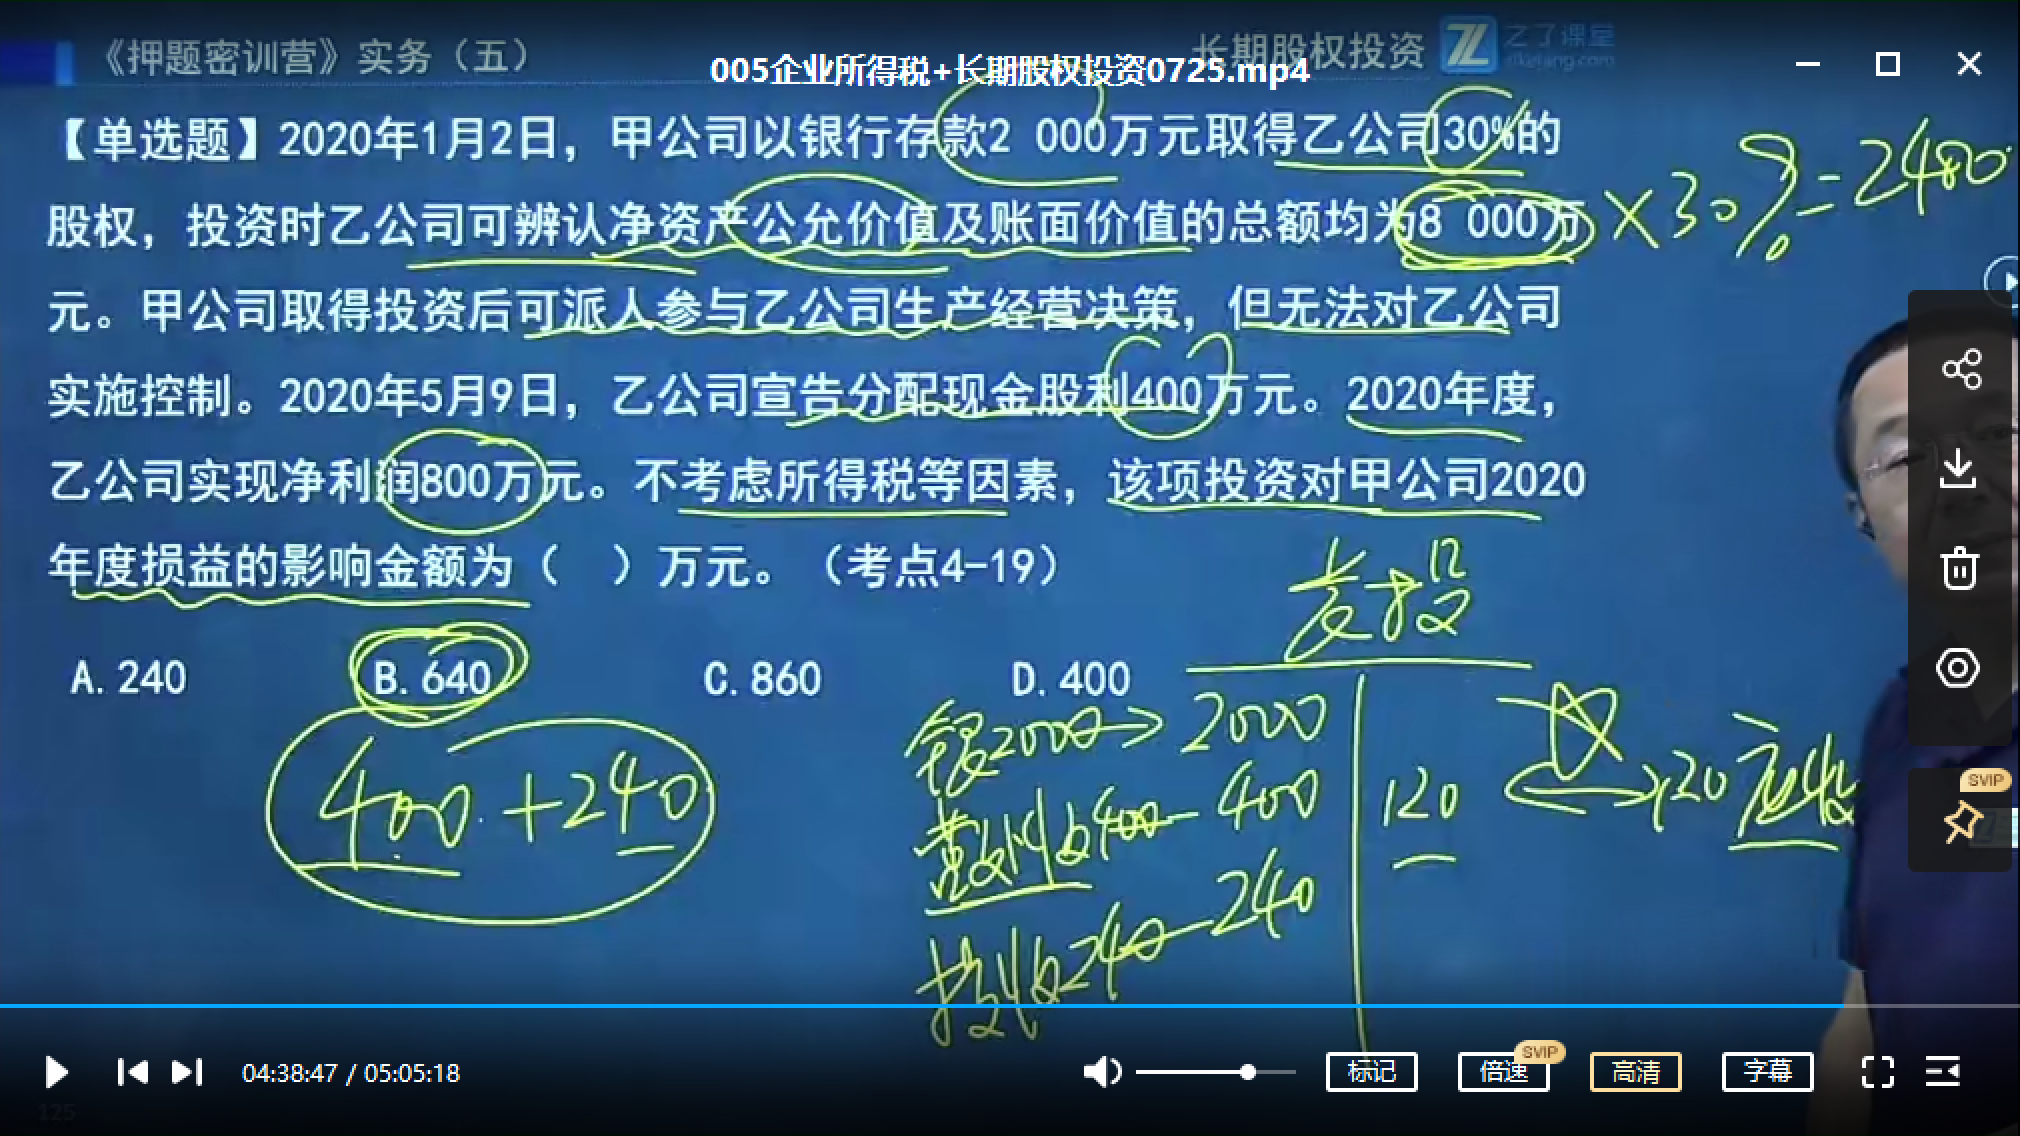 《押题密训营》实务（五）
长期股权投资
之了课堂
005企业所得税+长期股权投资0725.mp4
【单选题】2020年1月2日，甲公司以银行存款2 000万元取得乙公司30%的
股权，投资时乙公司可辨认净资产公允价值及账面价值的总额均为8 000万
×30%=2400
元。甲公司取得投资后可派人参与乙公司生产经营决策，但无法对乙公司
实施控制。2020年5月9日，乙公司宣告分配现金股利400万元。2020年度，
乙公司实现净利润800万元。不考虑所得税等因素，该项投资对甲公司2020
年度损益的影响金额为（ ）万元。（考点4-19）
长投
A.240 B.640 C.860 D.400
银2000 2000
400+240
400 400 120 120 应收
投收240 240
04:38:47 / 05:05:18
标记
倍速
SVIP
高清
字幕
SVIP
125